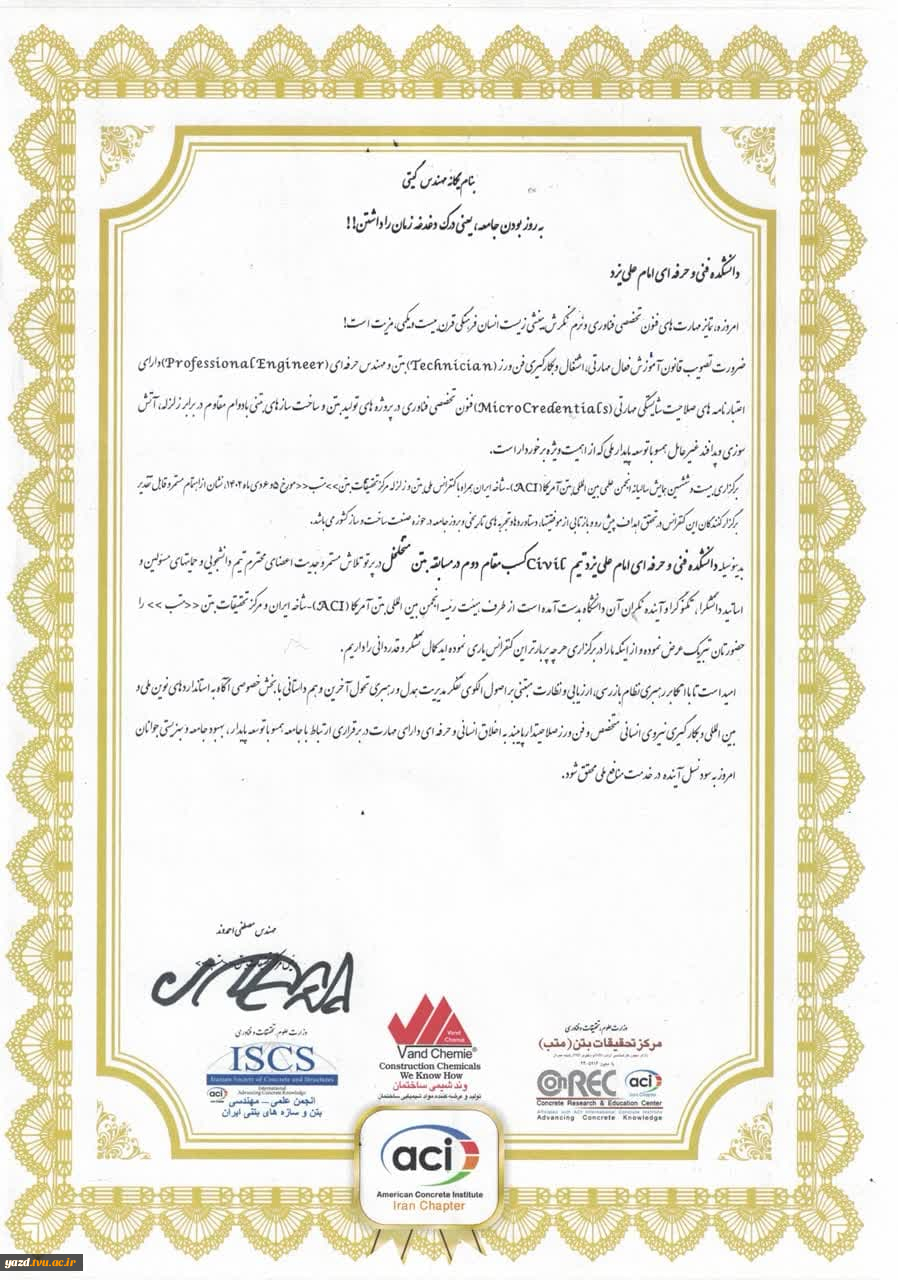 بنام یگانه مهندس گیتی
به روز بودن جامعه، یعنی درک دغدغه زمان را داشتن!!
دانشکده فنی و حرفه ای امام علی یزد
امروزه، تمایز مهارت های فنون تخصصی فناوری و نرم نگرش بینشی زیست انسان فرهنگی قرن بیست و یکمی، مزیت است!
ضرورت تصویب قانون آموزش فعال مهارتی، اشتغال و بکارگیری فن ورز (Technician) بتن و مهندس حرفه ای (Professional Engineer) دارای
اعتبارنامه های صلاحیت شایستگی مهارتی (MicroCredentials) فنون تخصصی فناوری در پروژه های تولید بتن و ساخت سازهای بتنی بادوام مقاوم در برابر زلزله، آتش
سوزی و پدافند غیرعامل همسو با توسعه پایدار ملی که از اهمیت ویژه برخوردار است.
برگزاری بیست و ششمین همایش سالیانه انجمن علمی بین المللی بتن آمریکا (ACI)-شاخه ایران همراه با کنفرانس ملی بتن و زلزله مرکز تحقیقات بتن >>متب<< مورخ ۵ و ۶ دی ماه ۱۴۰۲، نشان از اهتمام مستمر و قابل تقدیر
برگزارکنندگان این کنفرانس در تحقق اهداف پیش رو و بازتابی از موفقیتها، دستاوردها و تجربه های تاریخی و بروز جامعه در حوزه صنعت ساخت و ساز کشور می باشد.
بدینوسیله دانشکده فنی و حرفه ای امام علی یزد تیم Civil کسب مقام دوم در مسابقه بتن متخلخل در پرتو تلاش مستمر و جدیت اعضای محترم تیم دانشجویی و حمایتهای مسئولین و
اساتید دانشگرا، تکنوکرا و آینده نگران آن دانشگاه بدست آمده است از طرف هیئت رئیسه انجمن بین المللی بتن آمریکا (ACI)-شاخه ایران و مرکز تحقیقات بتن <<متب>> را
حضورتان تبریک عرض نموده و از اینکه ما را در برگزاری هر چه پربارتر این کنفرانس یاری نموده اید کمال تشکر و قدردانی را داریم.
امید است تا با اتکا بر رهبری نظام بازرسی، ارزیابی و نظارت مبتنی بر اصول الگوی تفکر مدیریت همدل و رهبری تحول آخرین و هم داستانی با بخش خصوصی آگاه به استانداردهای نوین ملی و
بین المللی و بکارگیری نیروی انسانی متخصص و فن ورز صلاحیتدار پایبند به اخلاق انسانی و حرفه ای دارای مهارت در برقراری ارتباط با جامعه همسو با توسعه پایدار، بهبود جامعه و بهزیستی جوانان
امروز به سود نسل آینده در خدمت منافع ملی محقق شود.
مهندس مصطفی احمدوند
وزارت علوم، تحقیقات و فناوری
ISCS
Iranian Society of Concrete and Structures
aci International
Advancing Concrete Knowledge
انجمن علمی - مهندسی
بتن و سازه های بتنی ایران
Vand Chemie
Vand Chemie®
Construction Chemicals
We Know How
وند شیمی ساختمان
تولید و عرضه کننده مواد شیمیایی ساختمان
وزارت علوم، تحقیقات و فناوری
مرکز تحقیقات بتن (متب)
ConREC aci
Iran Chapter
Concrete Research & Education Center
Affiliated with ACI International Concrete Institute
Advancing Concrete Knowledge
aci
American Concrete Institute
Iran Chapter
yazd.tvu.ac.ir